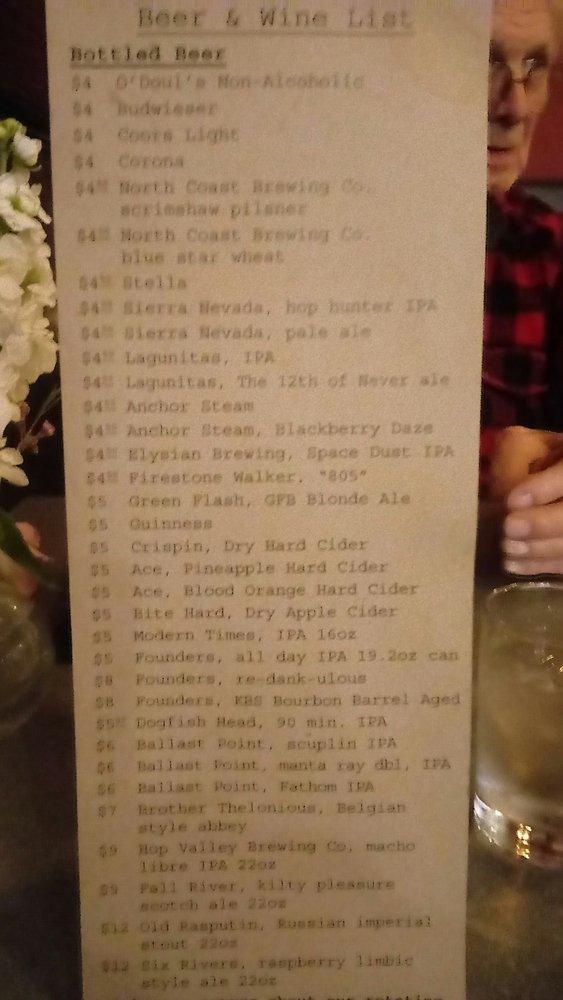 Beer & Wine List
Bottled Beer
$4 O'Doul's Non-Alcoholic
$4 Budwieser
$4 Coors Light
$4 Corona
$4⁵⁰ North Coast Brewing Co.
scrimshaw pilsner
$4⁵⁰ North Coast Brewing Co.
blue star wheat
$4⁵⁰ Stella
$4⁵⁰ Sierra Nevada, hop hunter IPA
$4⁵⁰ Sierra Nevada, pale ale
$4⁵⁰ Lagunitas, IPA
$4⁵⁰ Lagunitas, The 12th of Never ale
$4⁵⁰ Anchor Steam
$4⁵⁰ Anchor Steam, Blackberry Daze
$4⁵⁰ Elysian Brewing, Space Dust IPA
$4⁵⁰ Firestone Walker, "805"
$5 Green Flash, GFB Blonde Ale
$5 Guinness
$5 Crispin, Dry Hard Cider
$5 Ace, Pineapple Hard Cider
$5 Ace, Blood Orange Hard Cider
$5 Bite Hard, Dry Apple Cider
$5 Modern Times, IPA 16oz
$5 Founders, all day IPA 19.2oz can
$8 Founders, re-dank-ulous
$8 Founders, KBS Bourbon Barrel Aged
$5⁵⁰ Dogfish Head, 90 min. IPA
$6 Ballast Point, scuplin IPA
$6 Ballast Point, manta ray dbl, IPA
$6 Ballast Point, Fathom IPA
$7 Brother Thelonious, Belgian
style abbey
$9 Hop Valley Brewing Co, macho
libre IPA 22oz
$9 Fall River, kilty pleasure
scotch ale 22oz
$12 Old Rasputin, Russian imperial
stout 22oz
$12 Six Rivers, raspberry limbic
style ale 22oz
about our rotating